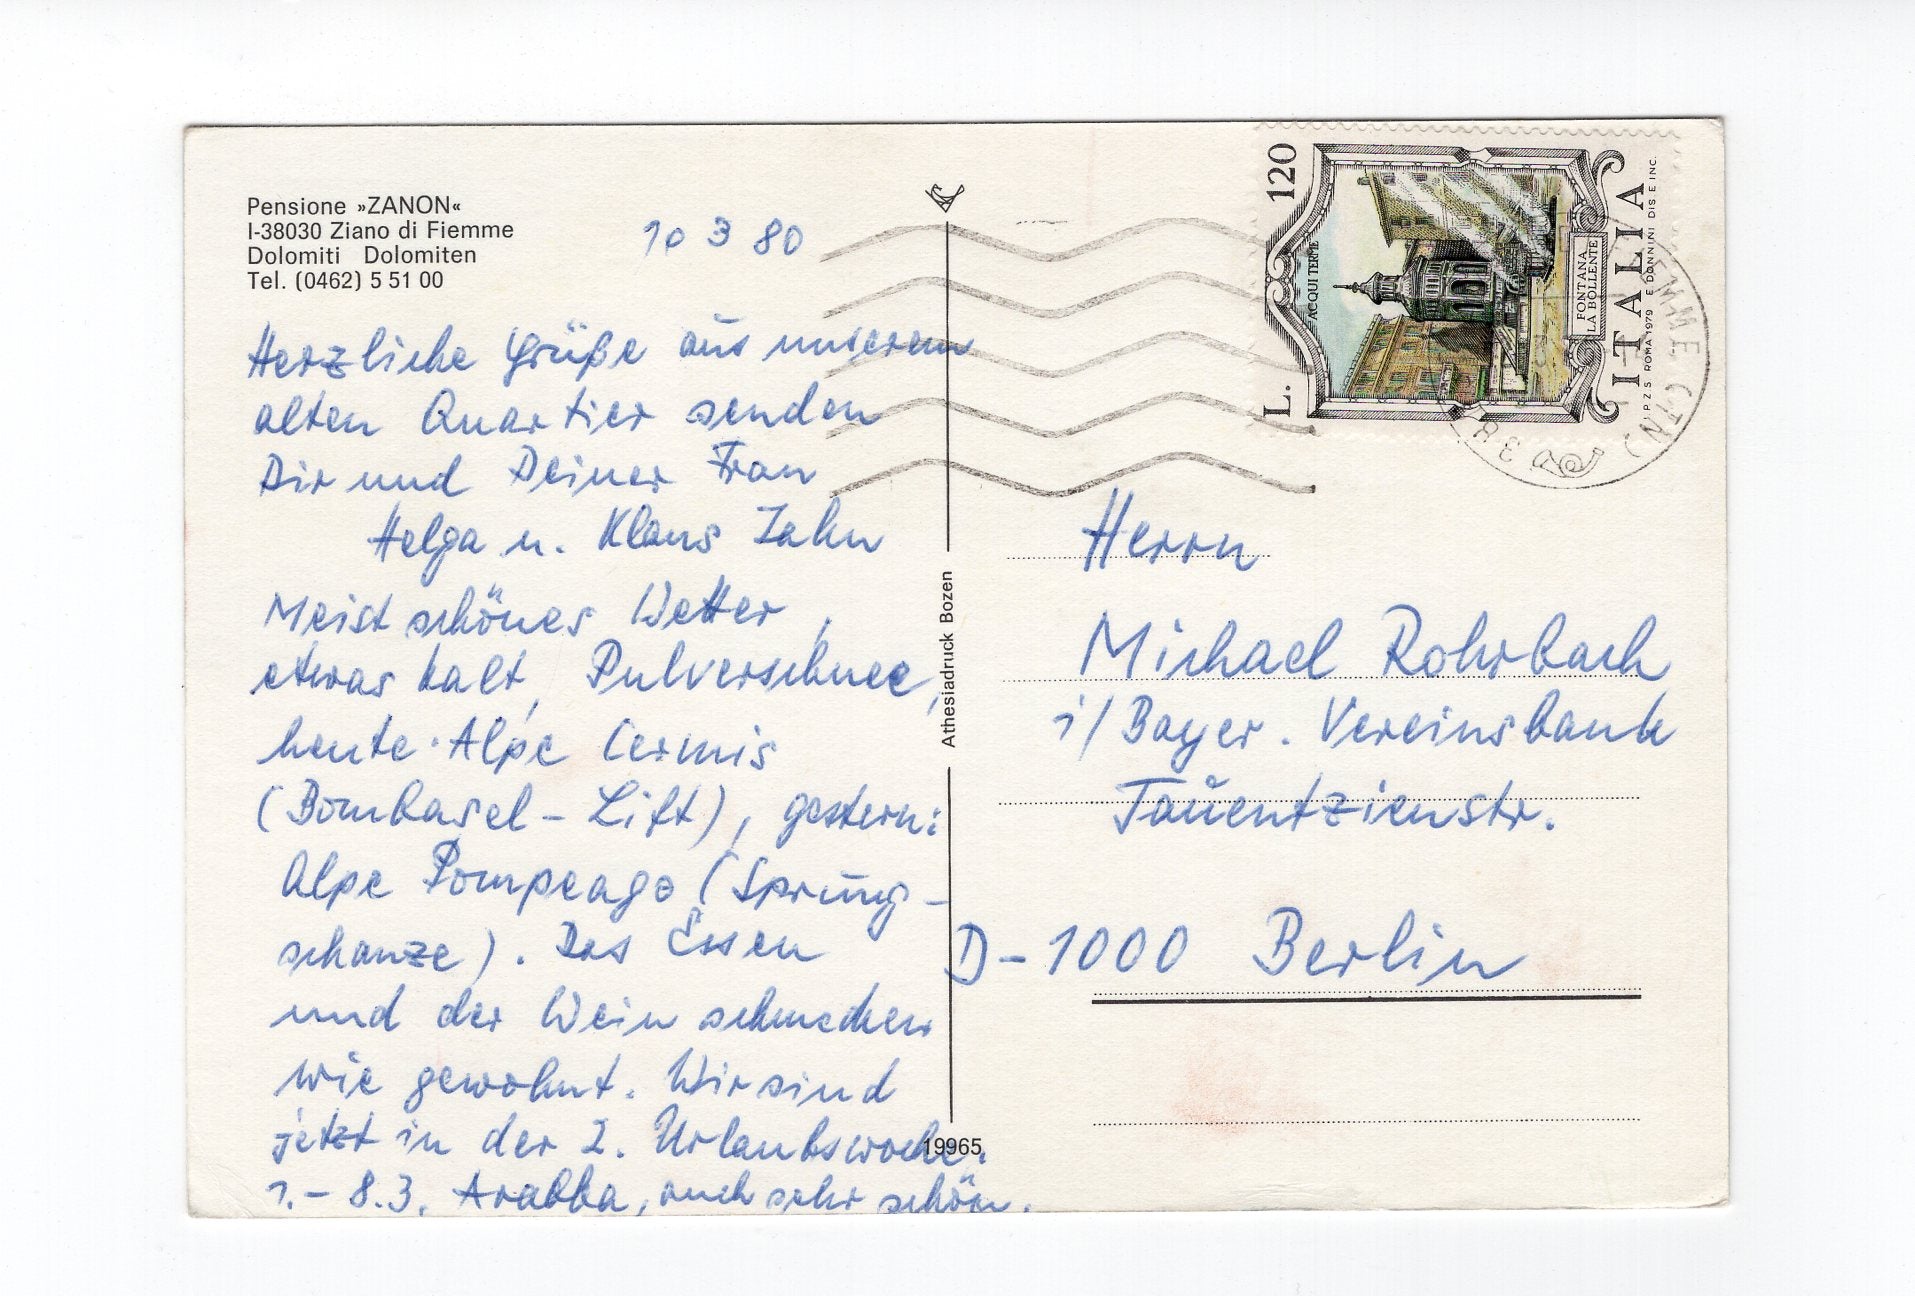 Pensione »ZANON«
I-38030 Ziano di Fiemme
Dolomiti Dolomiten
Tel. (0462) 5 51 00
10 3 80
Herzliche Grüße aus unserem
alten Quartier senden
Dir und Deiner Frau
Helga u. Klaus Zahn
Meist schönes Wetter,
etwas kalt, Pulverschnee,
heute Alpe Cermis
(Bombasel-Lift), gestern:
Alpe Pompeago (Sprung-
schanze). Das Essen
und der Wein schmecken
wie gewohnt. Wir sind
jetzt in der 2. Urlaubswoche.
1.-8.3. Arabba, auch sehr schön.
Athesiadruck Bozen
19965
L. 120
ACQUI TERME
FONTANA
LA BOLLENTE
ITALIA
I.P.Z.S. ROMA 1979 E. DONNINI DIS. E INC.
EMME (TN)
Herrn
Michael Rohrbach
i/Bayer. Vereinsbank
Tauentzienstr.
D-1000 Berlin